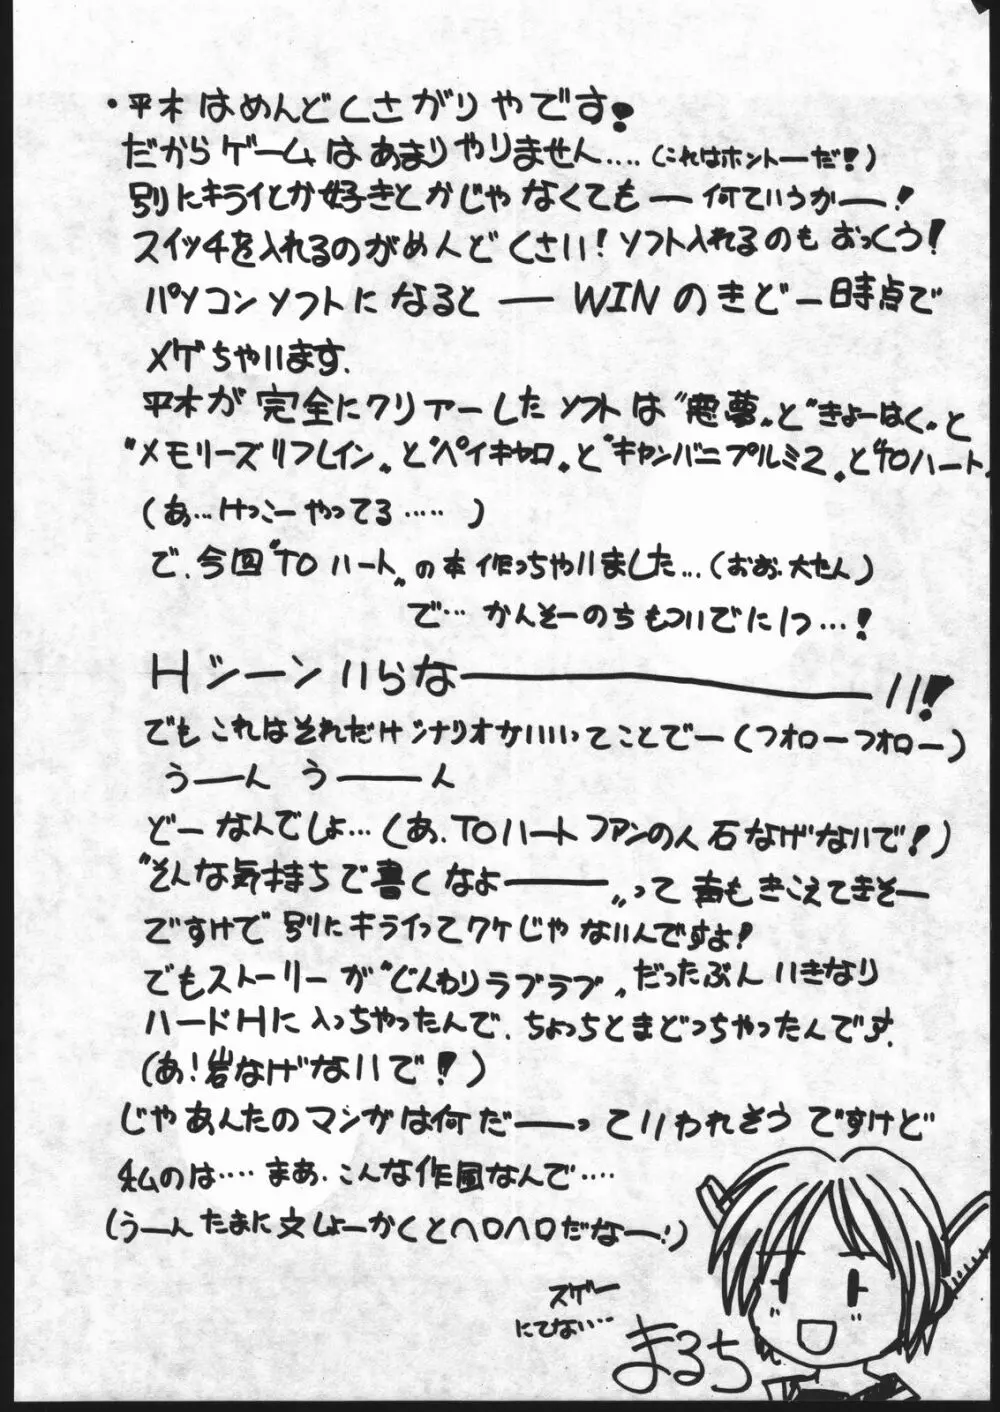 ・平木はめんどくさがりやです！
だからゲームはあまりやりません‥‥（これはホントーだ！）
別にキライとか好きとかじゃなくてもー何ていうかー！
スイッチを入れるのがめんどくさい！ソフト入れるのもおっくう！
パソコンソフトになると ― WINのきどー時点で
メゲちゃいます.
平木が完全にクリアーしたソフトは“悪夢„と“きょーはく„と
“メモリーズリフレイン„と“ペイキャロ„と“キャンバニプルミ2„と“TOハート„
（あ…けっこーやってる‥‥‥）
で、今回“TOハート„の本作っちゃいました…（おお、大たん）
で… かんそーのちもついでに1つ…！
Hシーンいらなーーーい！
でもこれはそれだけシナリオがいいってことでー（フォローフォロー）
うーん うーーん
どーなんでしょ…（あ、TOハートファンの人石なげないで！）
“そんな気持ちで書くなよーーー„って声もきこえてきそー
ですけで別にキライってワケじゃないんですよ！
でもストーリーが“じんわりラブラブ„だったぶんいきなり
ハードHに入っちゃったんで、ちょっととまどっちゃったんです.
（あ！岩なげないで！）
じゃあんたのマンガは何だーーっていわれそうですけど
私のは‥‥まあ、こんな作風なんで‥‥
（うーんたまに文しょーかくとヘロヘロだなー！）
スゲー
にてない‥‥
まるち